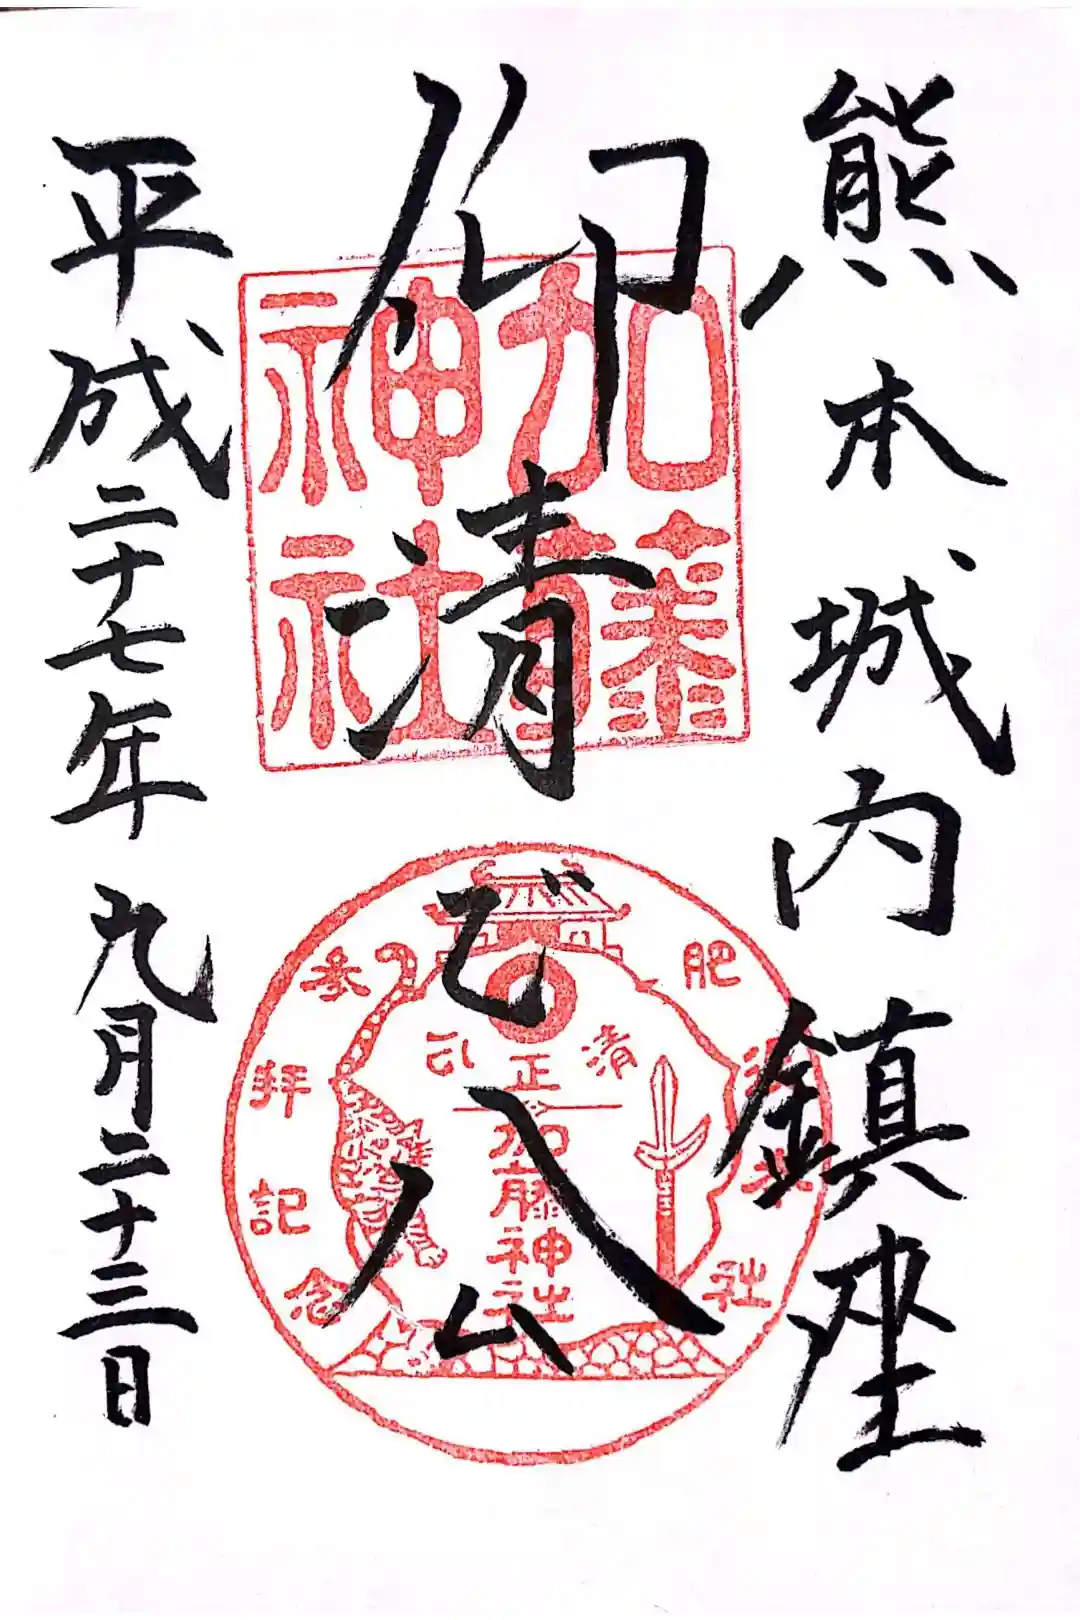 熊本城内鎮座
仰清正公
平成二十七年九月二十三日
加藤
神社
肥
社
参拝記念
清正公
加藤神社